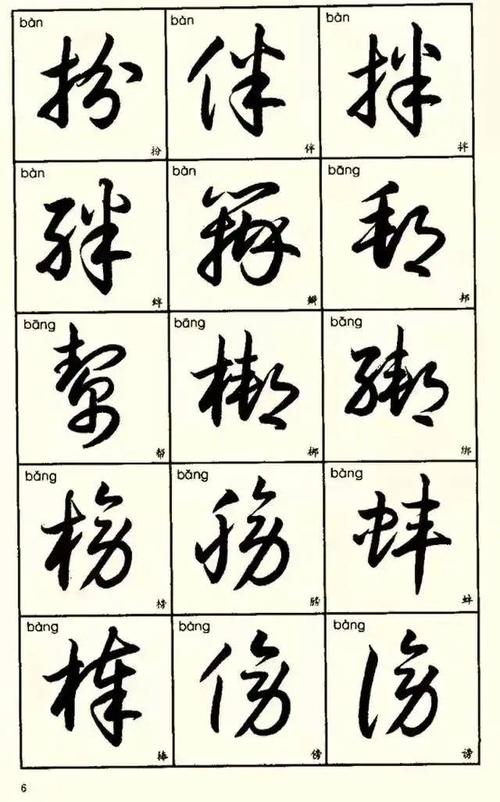 bàn bàn bàn
扮 伴 拌
扮 伴 拌
bàn bàn bāng
绊 瓣 邦
绊 瓣 邦
bāng bāng bǎng
帮 梆 绑
帮 梆 绑
bǎng bǎng bàng
榜 膀 蚌
榜 膀 蚌
bàng bàng bàng
棒 傍 谤
棒 傍 谤
6